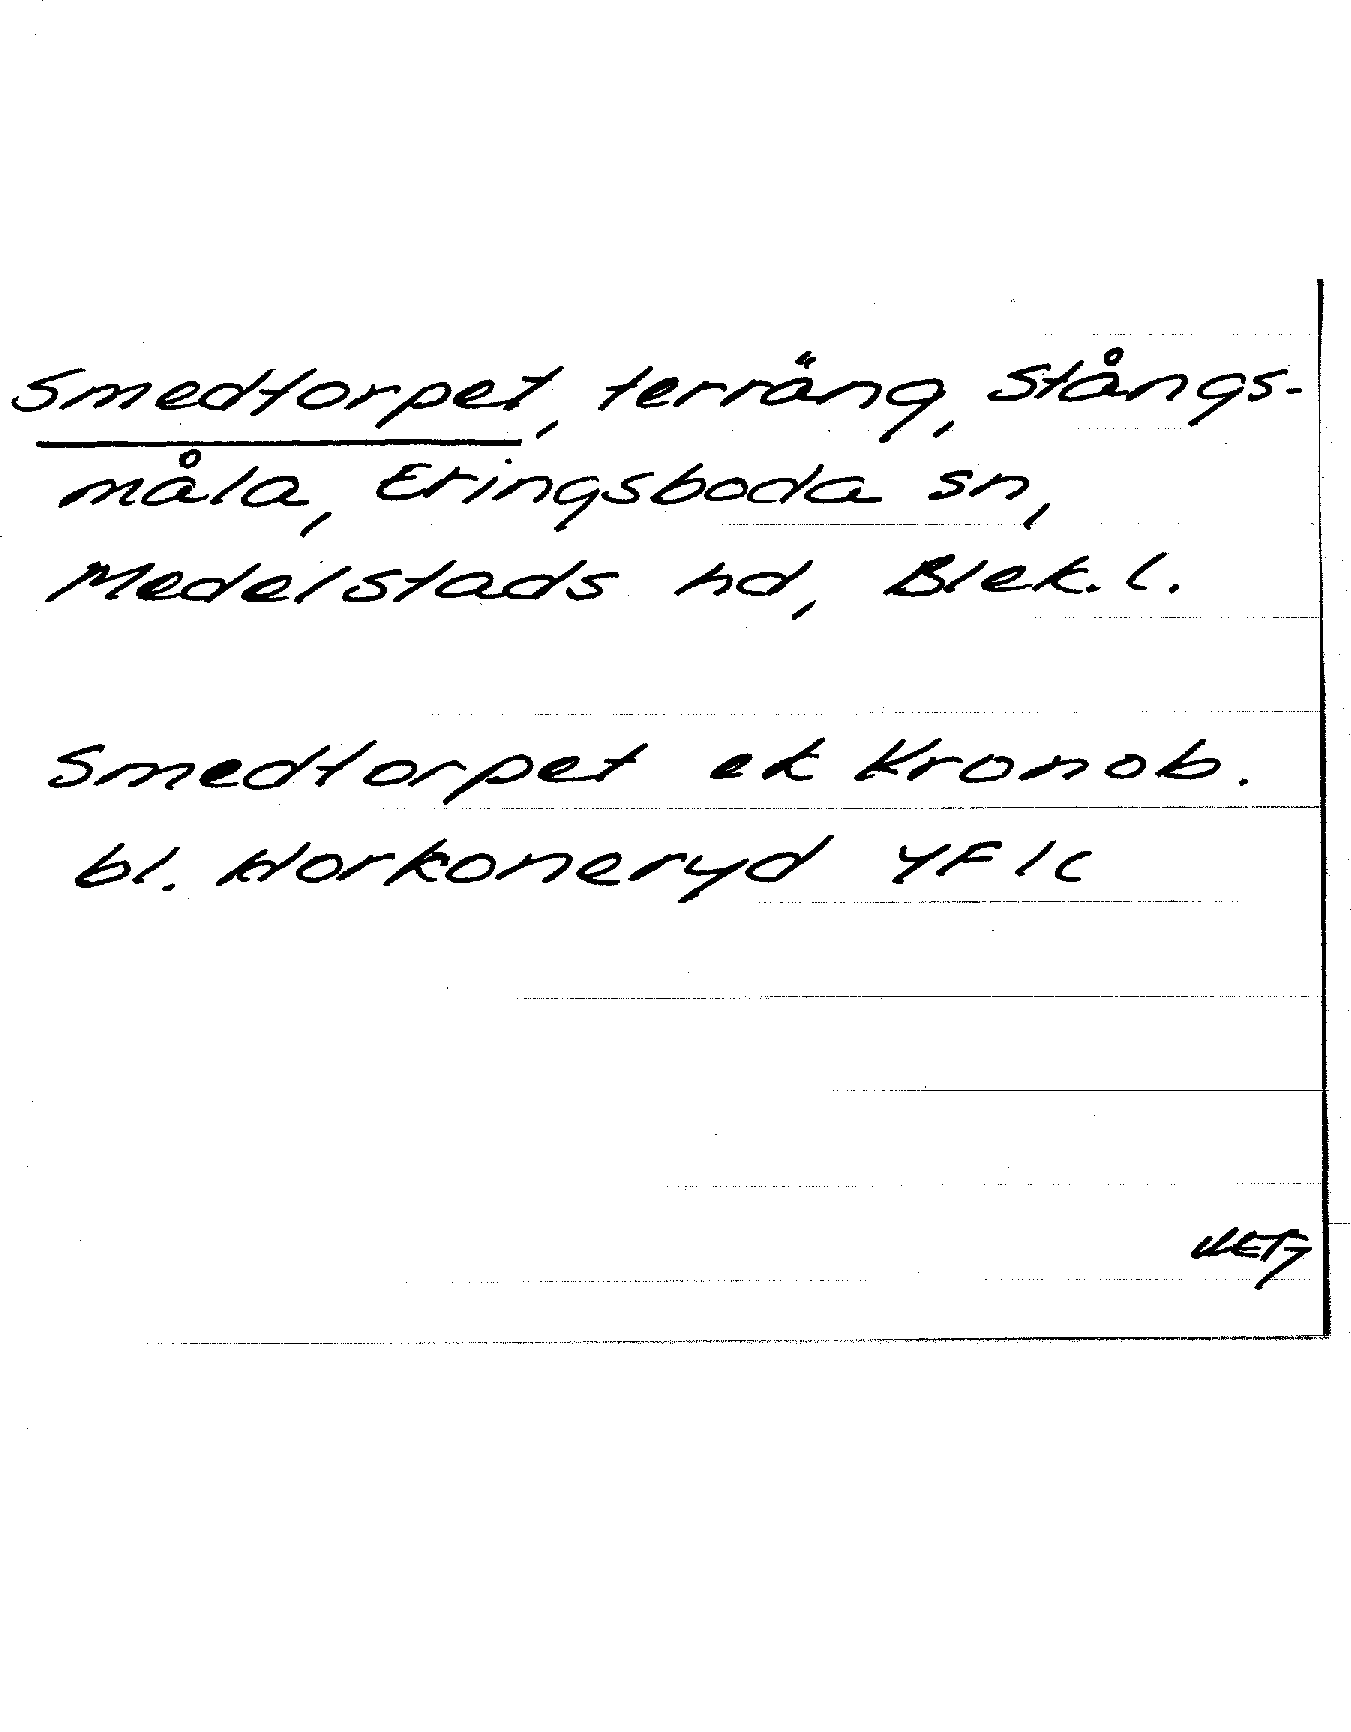 Smedtorpet, terräng, Stångs-
måla, Eringsboda sn,
Medelstads hd, Blek. l.
Smedtorpet ek Kronob.
bl. Horkoneryd YF 1c